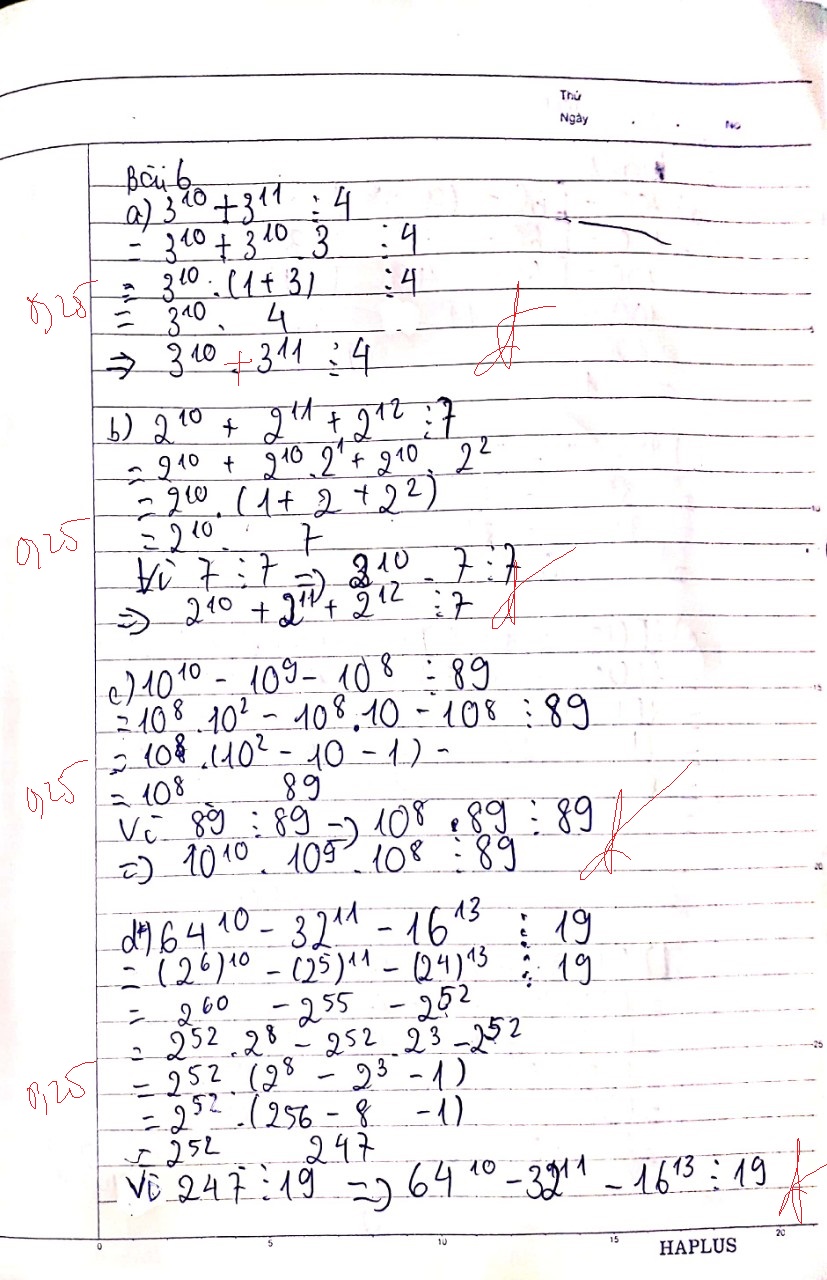 Thứ
Ngày . . No
Bài 6
a) 3¹⁰ + 3¹¹ ⋮ 4
= 3¹⁰ + 3¹⁰ . 3 ⋮ 4
= 3¹⁰ . (1 + 3) ⋮ 4
0,25
= 3¹⁰ . 4
=> 3¹⁰ + 3¹¹ ⋮ 4
b) 2¹⁰ + 2¹¹ + 2¹² ⋮ 7
= 2¹⁰ + 2¹⁰ . 2¹ + 2¹⁰ . 2²
= 2¹⁰ . (1 + 2 + 2²)
0,25
= 2¹⁰ . 7
Vì 7 ⋮ 7 => 2¹⁰ . 7 ⋮ 7
=> 2¹⁰ + 2¹¹ + 2¹² ⋮ 7
c) 10¹⁰ - 10⁹ - 10⁸ ⋮ 89
= 10⁸ . 10² - 10⁸ . 10 - 10⁸ ⋮ 89
= 10⁸ . (10² - 10 - 1) -
0,25
= 10⁸ 89
Vì 89 ⋮ 89 => 10⁸ . 89 ⋮ 89
=> 10¹⁰ . 10⁹ . 10⁸ ⋮ 89
d*) 64¹⁰ - 32¹¹ - 16¹³ ⋮ 19
= (2⁶)¹⁰ - (2⁵)¹¹ - (2⁴)¹³ ⋮ 19
= 2⁶⁰ - 2⁵⁵ - 2⁵²
= 2⁵² . 2⁸ - 2⁵² . 2³ - 2⁵²
0,25
= 2⁵² . (2⁸ - 2³ - 1)
= 2⁵² . (256 - 8 - 1)
= 2⁵² 247
Vì 247 ⋮ 19 => 64¹⁰ - 32¹¹ - 16¹³ ⋮ 19
0 5 10 15 20
HAPLUS